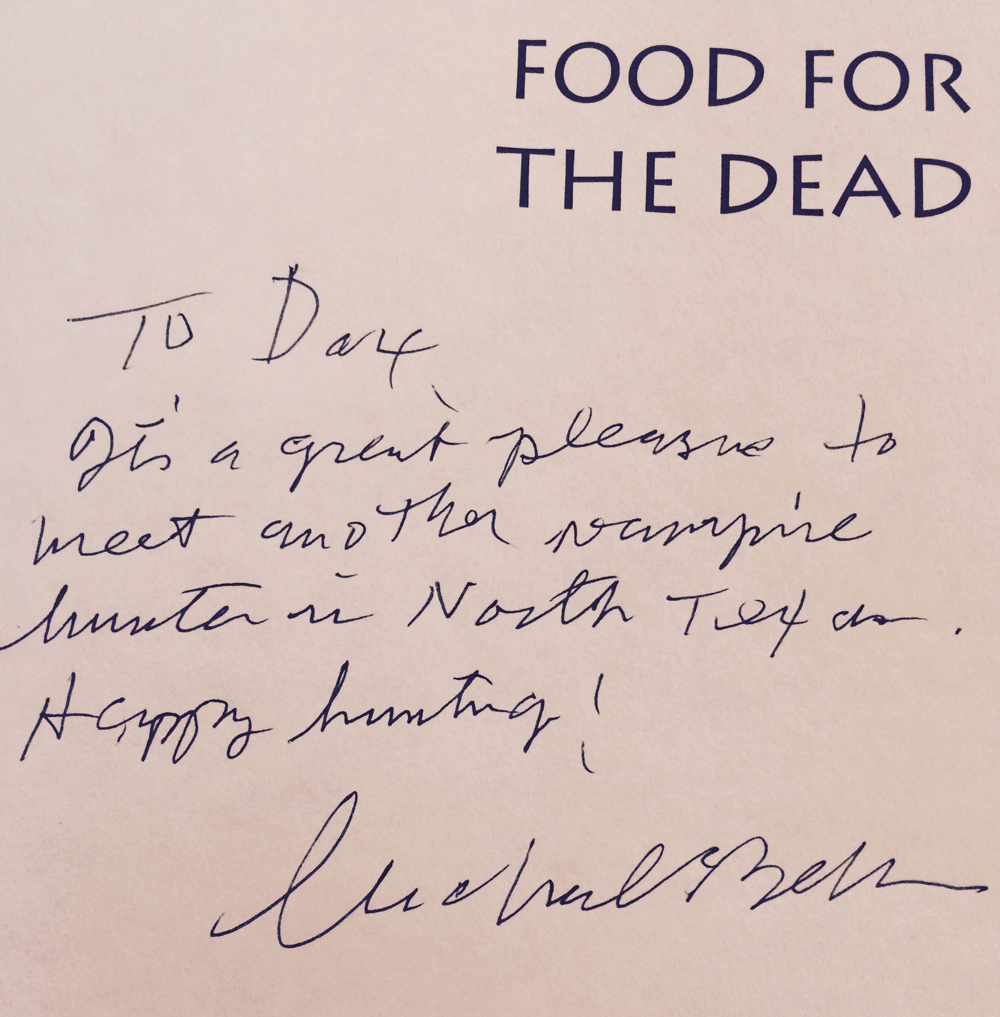 FOOD FOR
THE DEAD
To Dax
It's a great pleasure to
meet another vampire
hunter in North Texas.
Happy hunting!
Michael E Bell